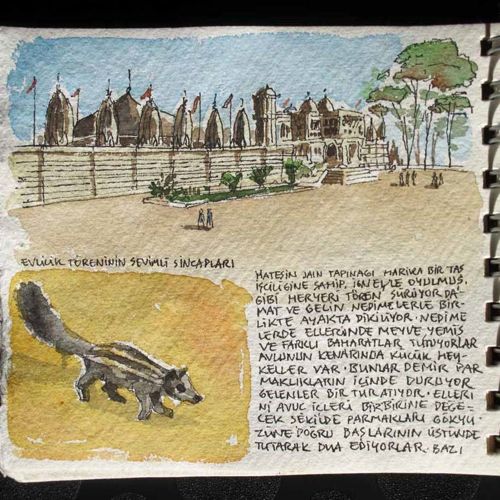 EVLİLİK TÖRENİNİN SEVİMLİ SİNCAPLARI
HATEŞİN JAIN TAPINAGI HARIKA BİR TAŞ
İŞCİLİGİNE SAHİP. İGNEYLE OYULMUŞ
GİBİ HERYERİ TÖREN SÜRÜYOR DA-
MAT VE GELİN NEDİMELERLE BİR-
LİKTE AYAKTA DİKİLİYOR. NEDİME
LERDE ELLERİNDE MEYVE YEMİŞ
VE FARKLI BAHARATLAR TUTUYORLAR
AVLUNUN KENARINDA KÜCÜK HEY-
KELLER VAR. BUNLAR DEMİR PAR
MAKLIKLARIN İÇİNDE DURUYOR
GELENLER BİR TUR ATIYOR. ELLERİ
Nİ AVUC İCLERİ BİRBİRİNE DEĞE-
CEK SEKİLDE PARMAKLARI GÖKYÜ
ZÜNE DOĞRU BAŞLARININ ÜSTÜNDE
TUTARAK DUA EDİYORLAR. BAZI